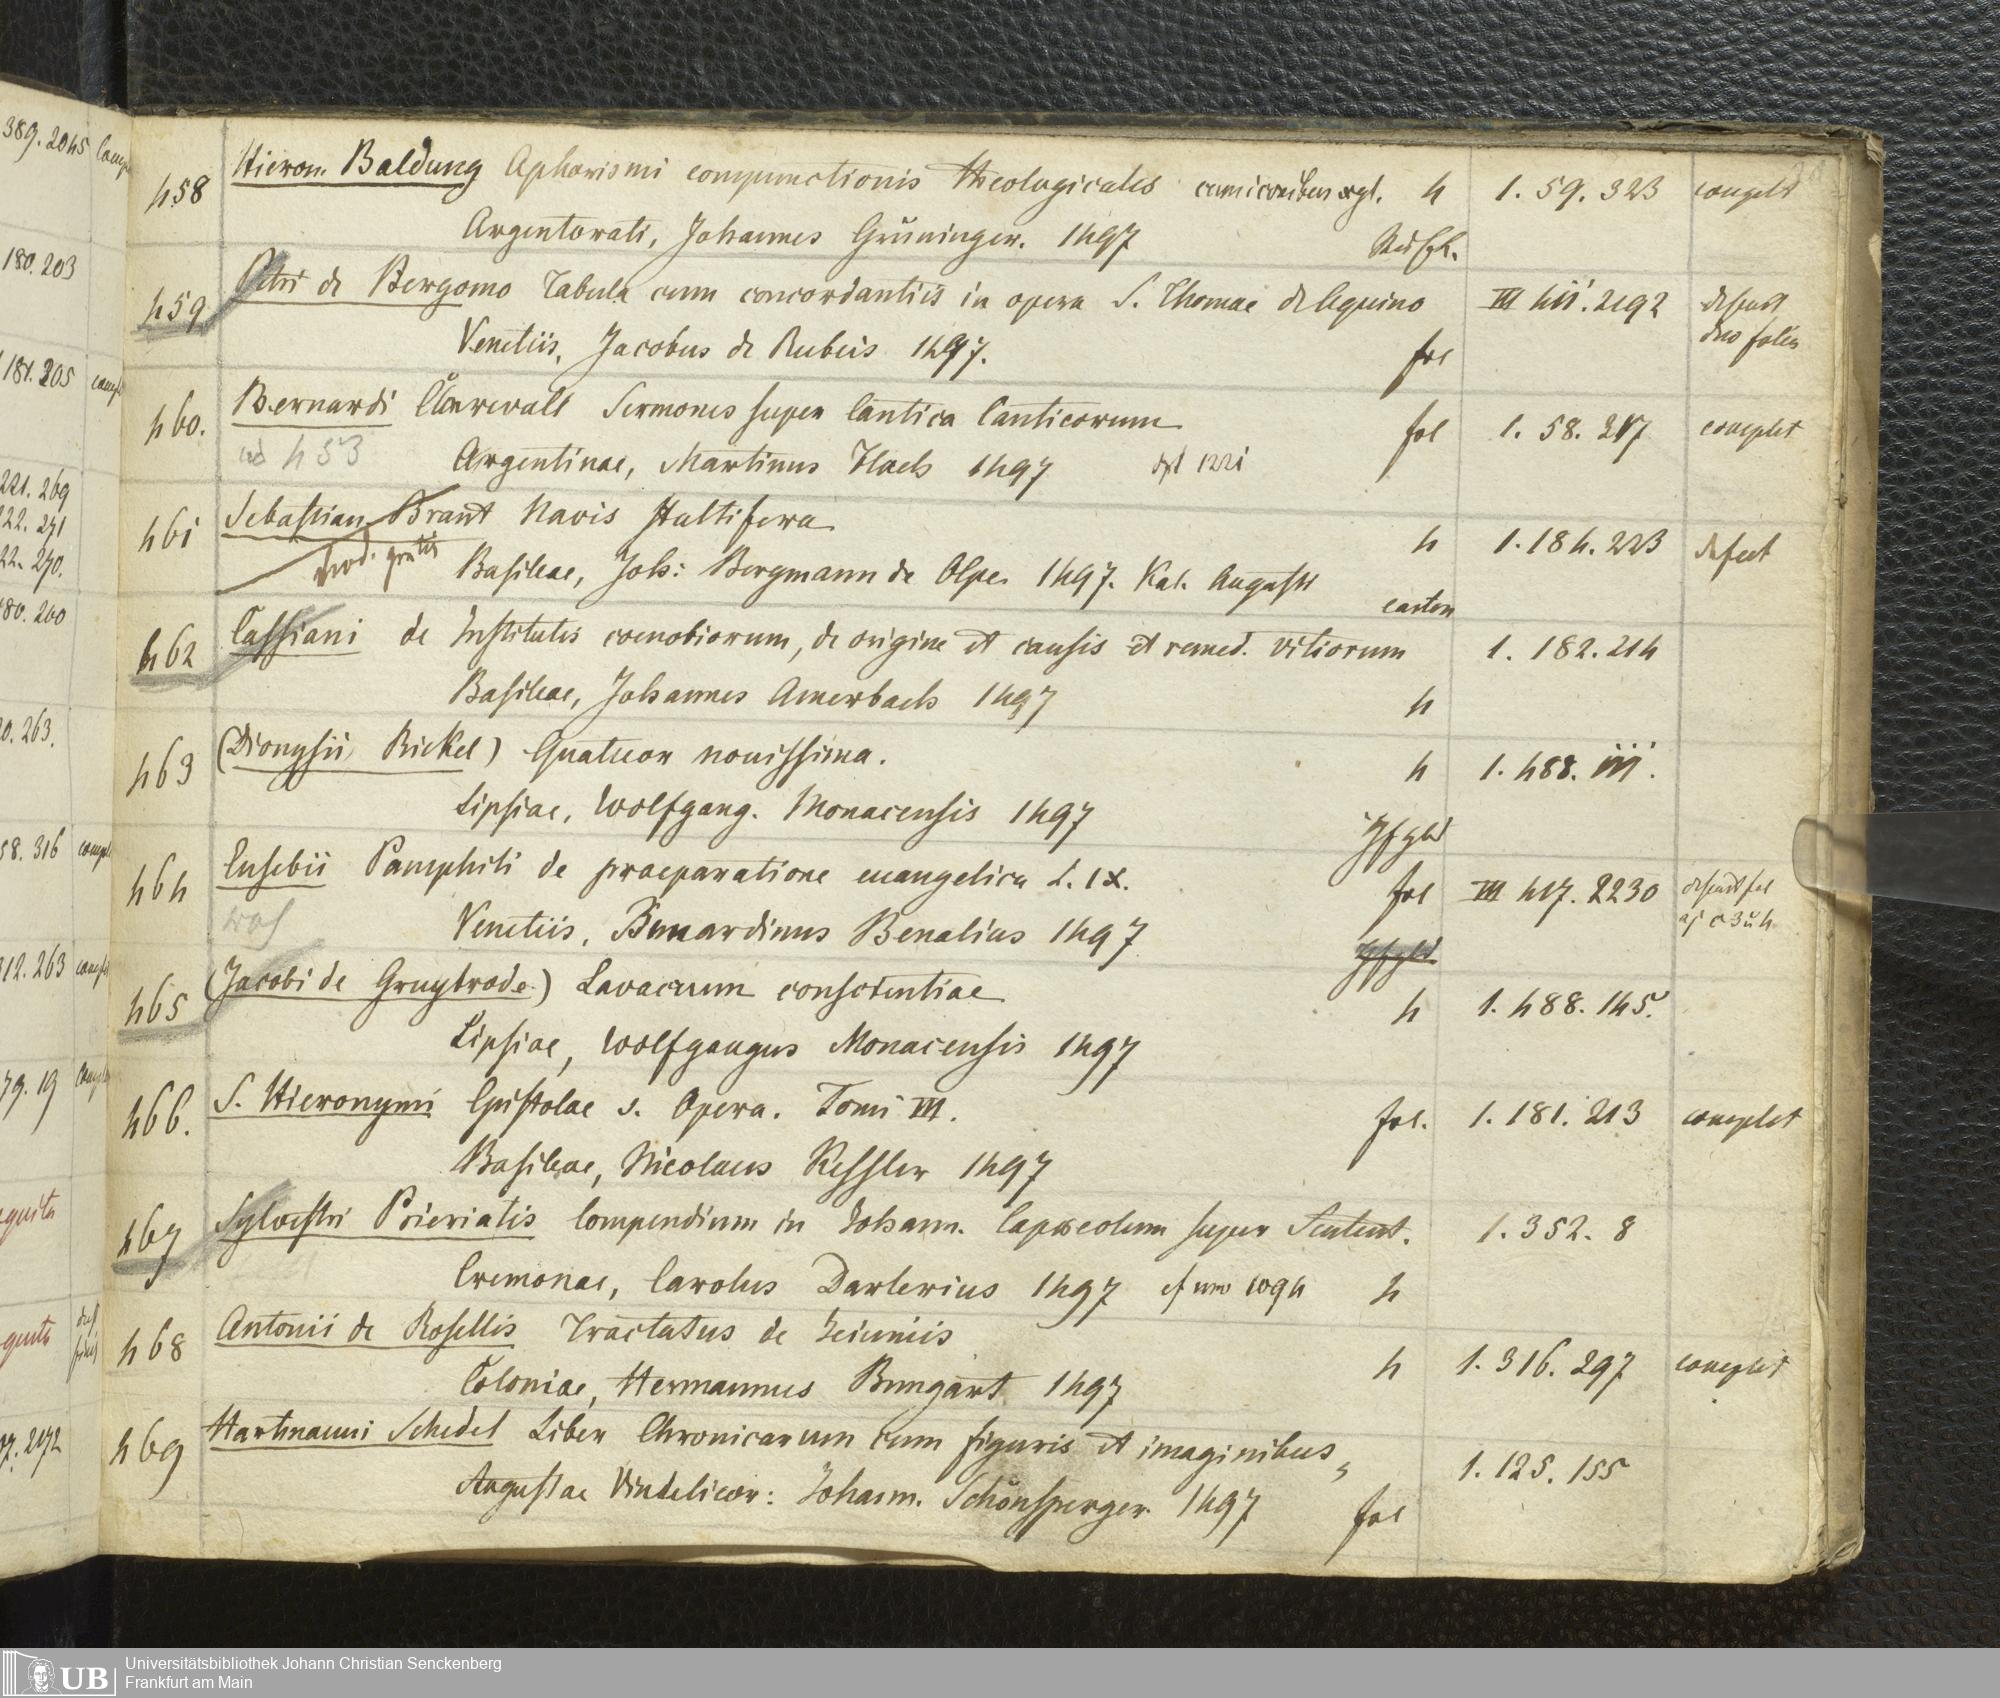 389. 2045 Comp
180. 203
181. 205 comp
221. 269
222. 271
22. 270.
180. 260
20. 263.
58. 316 comp
312. 263 comp
79. 19 comp
07. 2172
458 Hieron. Baldung Aphorismi compunctionis theologicales 4 1. 59. 323 complt
Argentorati, Johannes Grüninger. 1497
459 Petri de Bergomo Tabula cum concordantiis in opera S. Thomae de Aquino III 411. 2192 defunt
Venetiis, Jacobus de Rubeis 1497. fol duo folia
460. Bernardi Clarevall Sermones super Cantica Canticorum fol 1. 58. 217 complet
ad 453 Argentinae, Martinus Flach 1497 1221
461 Sebastian Brant Navis stultifera 4 1. 184. 223 defect
Basileae, Joh: Bergmann de Olpe. 1497. Kal. Augusti carton
462 Cassiani de Institutis coenobiorum, de origine et causis et remed. vitiorum 1. 182. 214
Basileae, Johannes Amerbach 1497 4
463 (Dionysii Rickel) Quatuor novissima. 4 1. 488. 111.
Lipsiae, Wolfgang. Monacensis 1497
464 Eusebii Pamphili de praeparatione euangelica L. IX. fol III 417. 2230
Venetiis, Bernardinus Benalius 1497
465 (Jacobi de Gruytrode) Lavacrum conscientiae 4 1. 488. 145.
Lipsiae, Wolfgangus Monacensis 1497
466. S. Hieronymi Epistolae s. Opera. Tomi III. fol. 1. 181. 213 complet
Basileae, Nicolaus Kessler 1497
467 Sylvestri Prieriatis Compendium in Johann. Capreolum super Sentent. 1. 352. 8
Cremonae, Carolus Darlerius 1497 cf nro 1094 4
468 Antonii de Rosellis Tractatus de Jeiuniis 4 1. 316. 297 complet
Coloniae, Hermannus Bungart 1497
469 Hartmanni Schedel Liber Chronicarum cum figuris et imaginibus, 1. 125. 155
Augustae Vindelicor: Johann. Schönsperger 1497 fol
UB Universitätsbibliothek Johann Christian Senckenberg
Frankfurt am Main